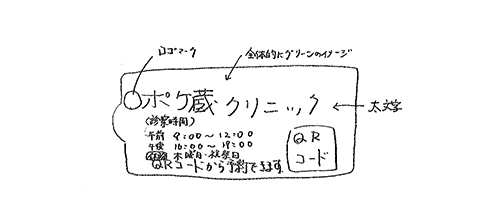 ロゴマーク
全体的にグリーンのイメージ
ポケ蔵クリニック
太文字
(診察時間)
午前 9:00〜12:00
午後 16:00〜19:00
木曜日・祝祭日
QRコードから予約できます
QR
コード